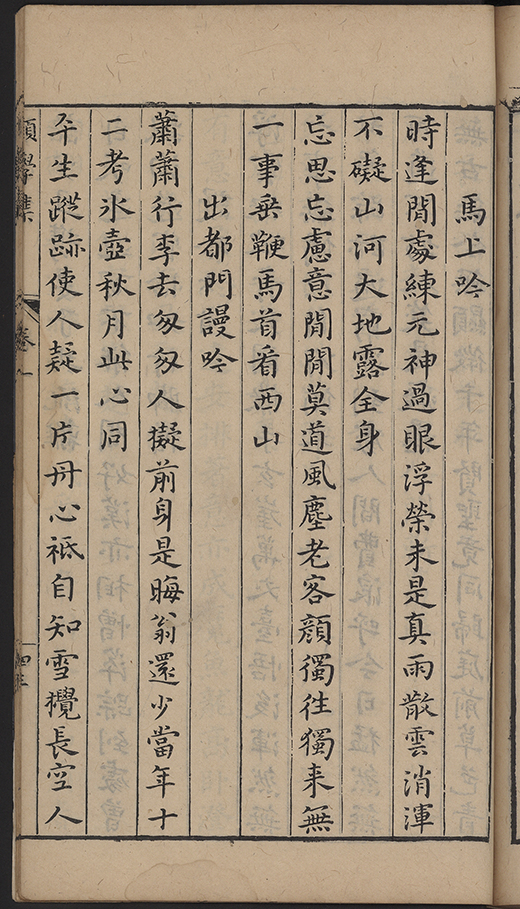 馬上吟
時逢閒處練元神過眼浮榮未是真雨散雲消渾
不礙山河大地露全身
忘思忘慮意閒閒莫道風塵老客顔獨徃獨来無
一事垂鞭馬首看西山
出都門謾吟
蕭蕭行李去匆匆人擬前身是晦翁還少當年十
二考氷壺秋月此心同
平生蹤跡使人疑一片丹心祗自知雪攪長空人
願學集
卷一